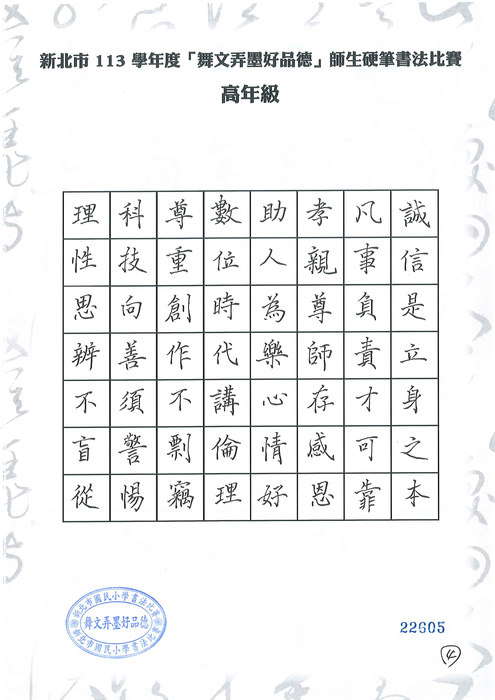 新北市 113 學年度「舞文弄墨好品德」師生硬筆書法比賽
高年級
誠信是立身之本
凡事負責才可靠
孝親尊師存感恩
助人為樂心情好
數位時代講倫理
尊重創作不剽竊
科技向善須警惕
理性思辨不盲從
新北市國民小學書法比賽
舞文弄墨好品德
新北市國民小學書法比
22605
4